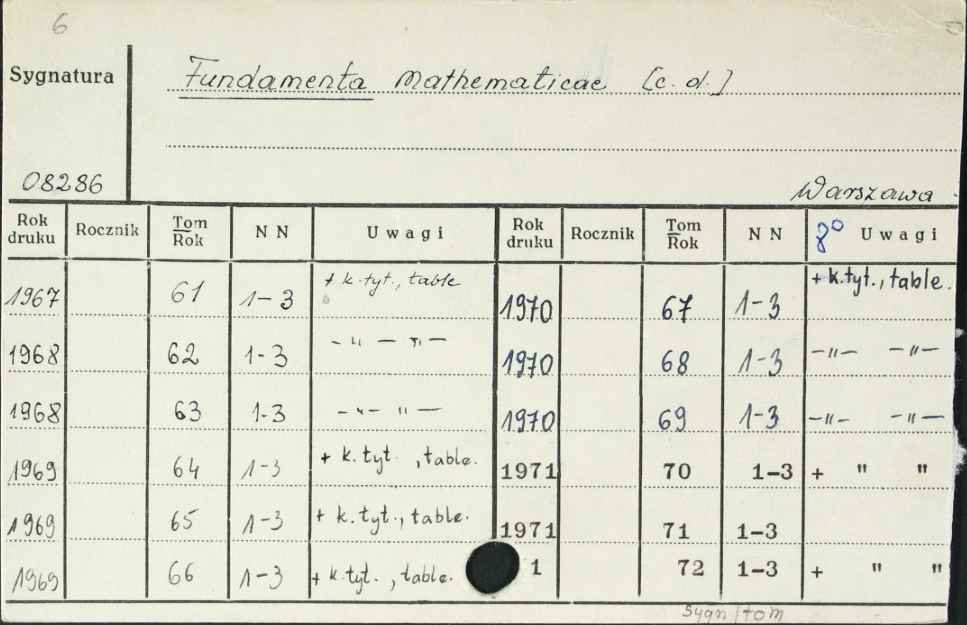 6
Sygnatura Fundamenta Mathematicae [c. d.]
08286 Warszawa
Rok druku Rocznik Tom Rok N N Uwagi Rok druku Rocznik Tom Rok N N 8° Uwagi
1967 61 1-3 + k.tyt., table 1970 67 1-3 + k.tyt., table.
1968 62 1-3 - " - " - 1970 68 1-3 -"- -"-
1968 63 1-3 - " - " - 1970 69 1-3 -"- -"-
1969 64 1-3 + k.tyt., table. 1971 70 1-3 + " "
1969 65 1-3 + k.tyt., table. 1971 71 1-3
1969 66 1-3 + k.tyt., table. 1 72 1-3 + " "
Sygn/tom